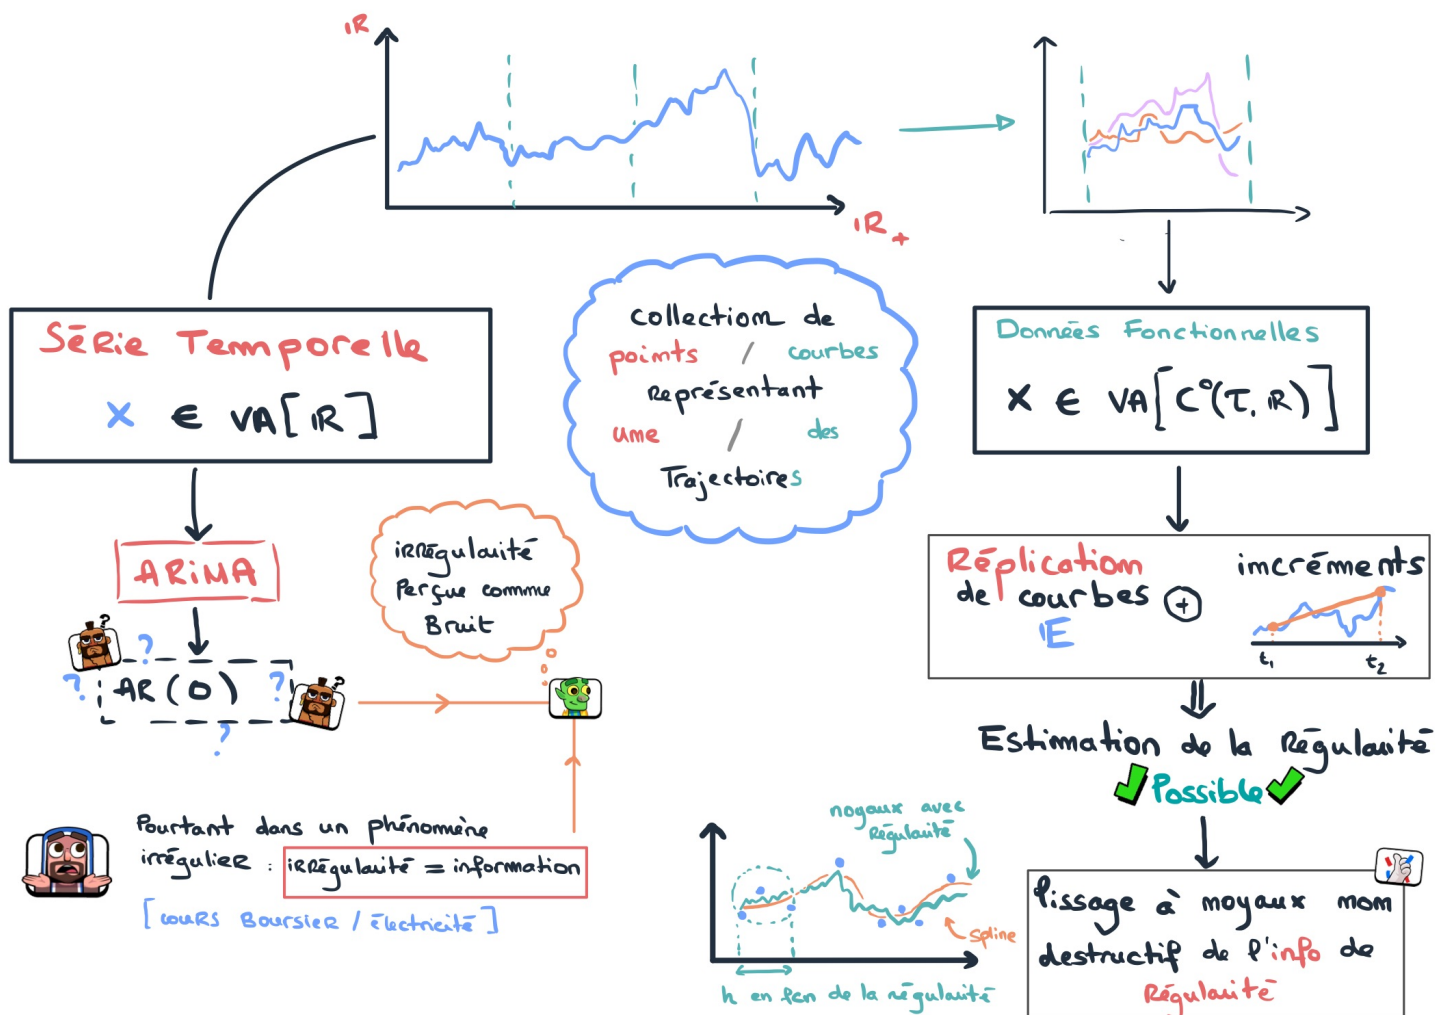 IR
IR+
Série Temporelle
X ∈ VA[IR]
ARiMA
?
?
?
AR(0)
?
?
?
irrégularité
Perçue comme
Bruit
Pourtant dans un phénomène
irrégulier : irrégularité = information
[cours Boursier / électricité]
collection de
points / courbes
Représentant
une / des
Trajectoires
Données Fonctionnelles
X ∈ VA[C°(T, IR)]
Réplication
de courbes +
IE
incréments
t1 t2
Estimation de la Régularité
Possible
noyaux avec
Régularité
spline
h en fcn de la régularité
lissage à noyaux non
destructif de l'info de
Régularité